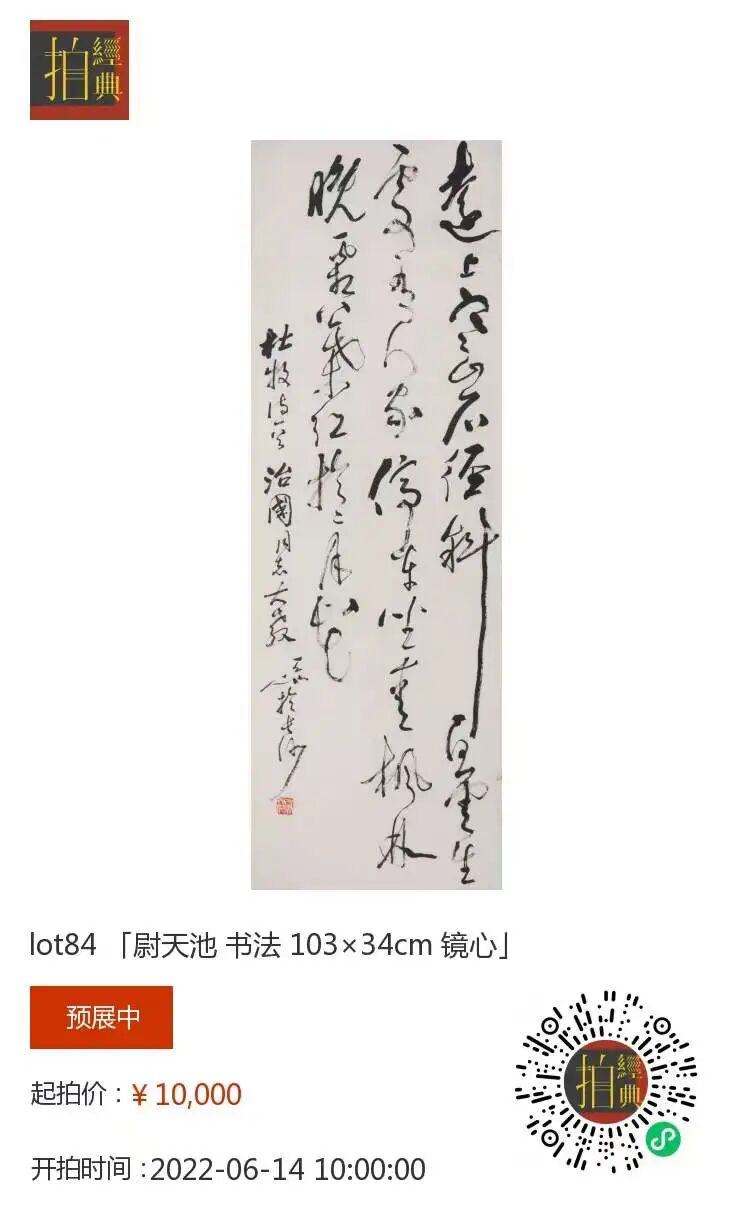 拍 經典
遠上寒山石徑斜白雲生
處有人家停車坐愛楓林
晚霜葉紅於二月花
杜牧诗意 治國同志大教 天池於長沙
lot84 「尉天池 书法 103×34cm 镜心」
预展中
起拍价：¥ 10,000
开拍时间：2022-06-14 10:00:00
拍 經典